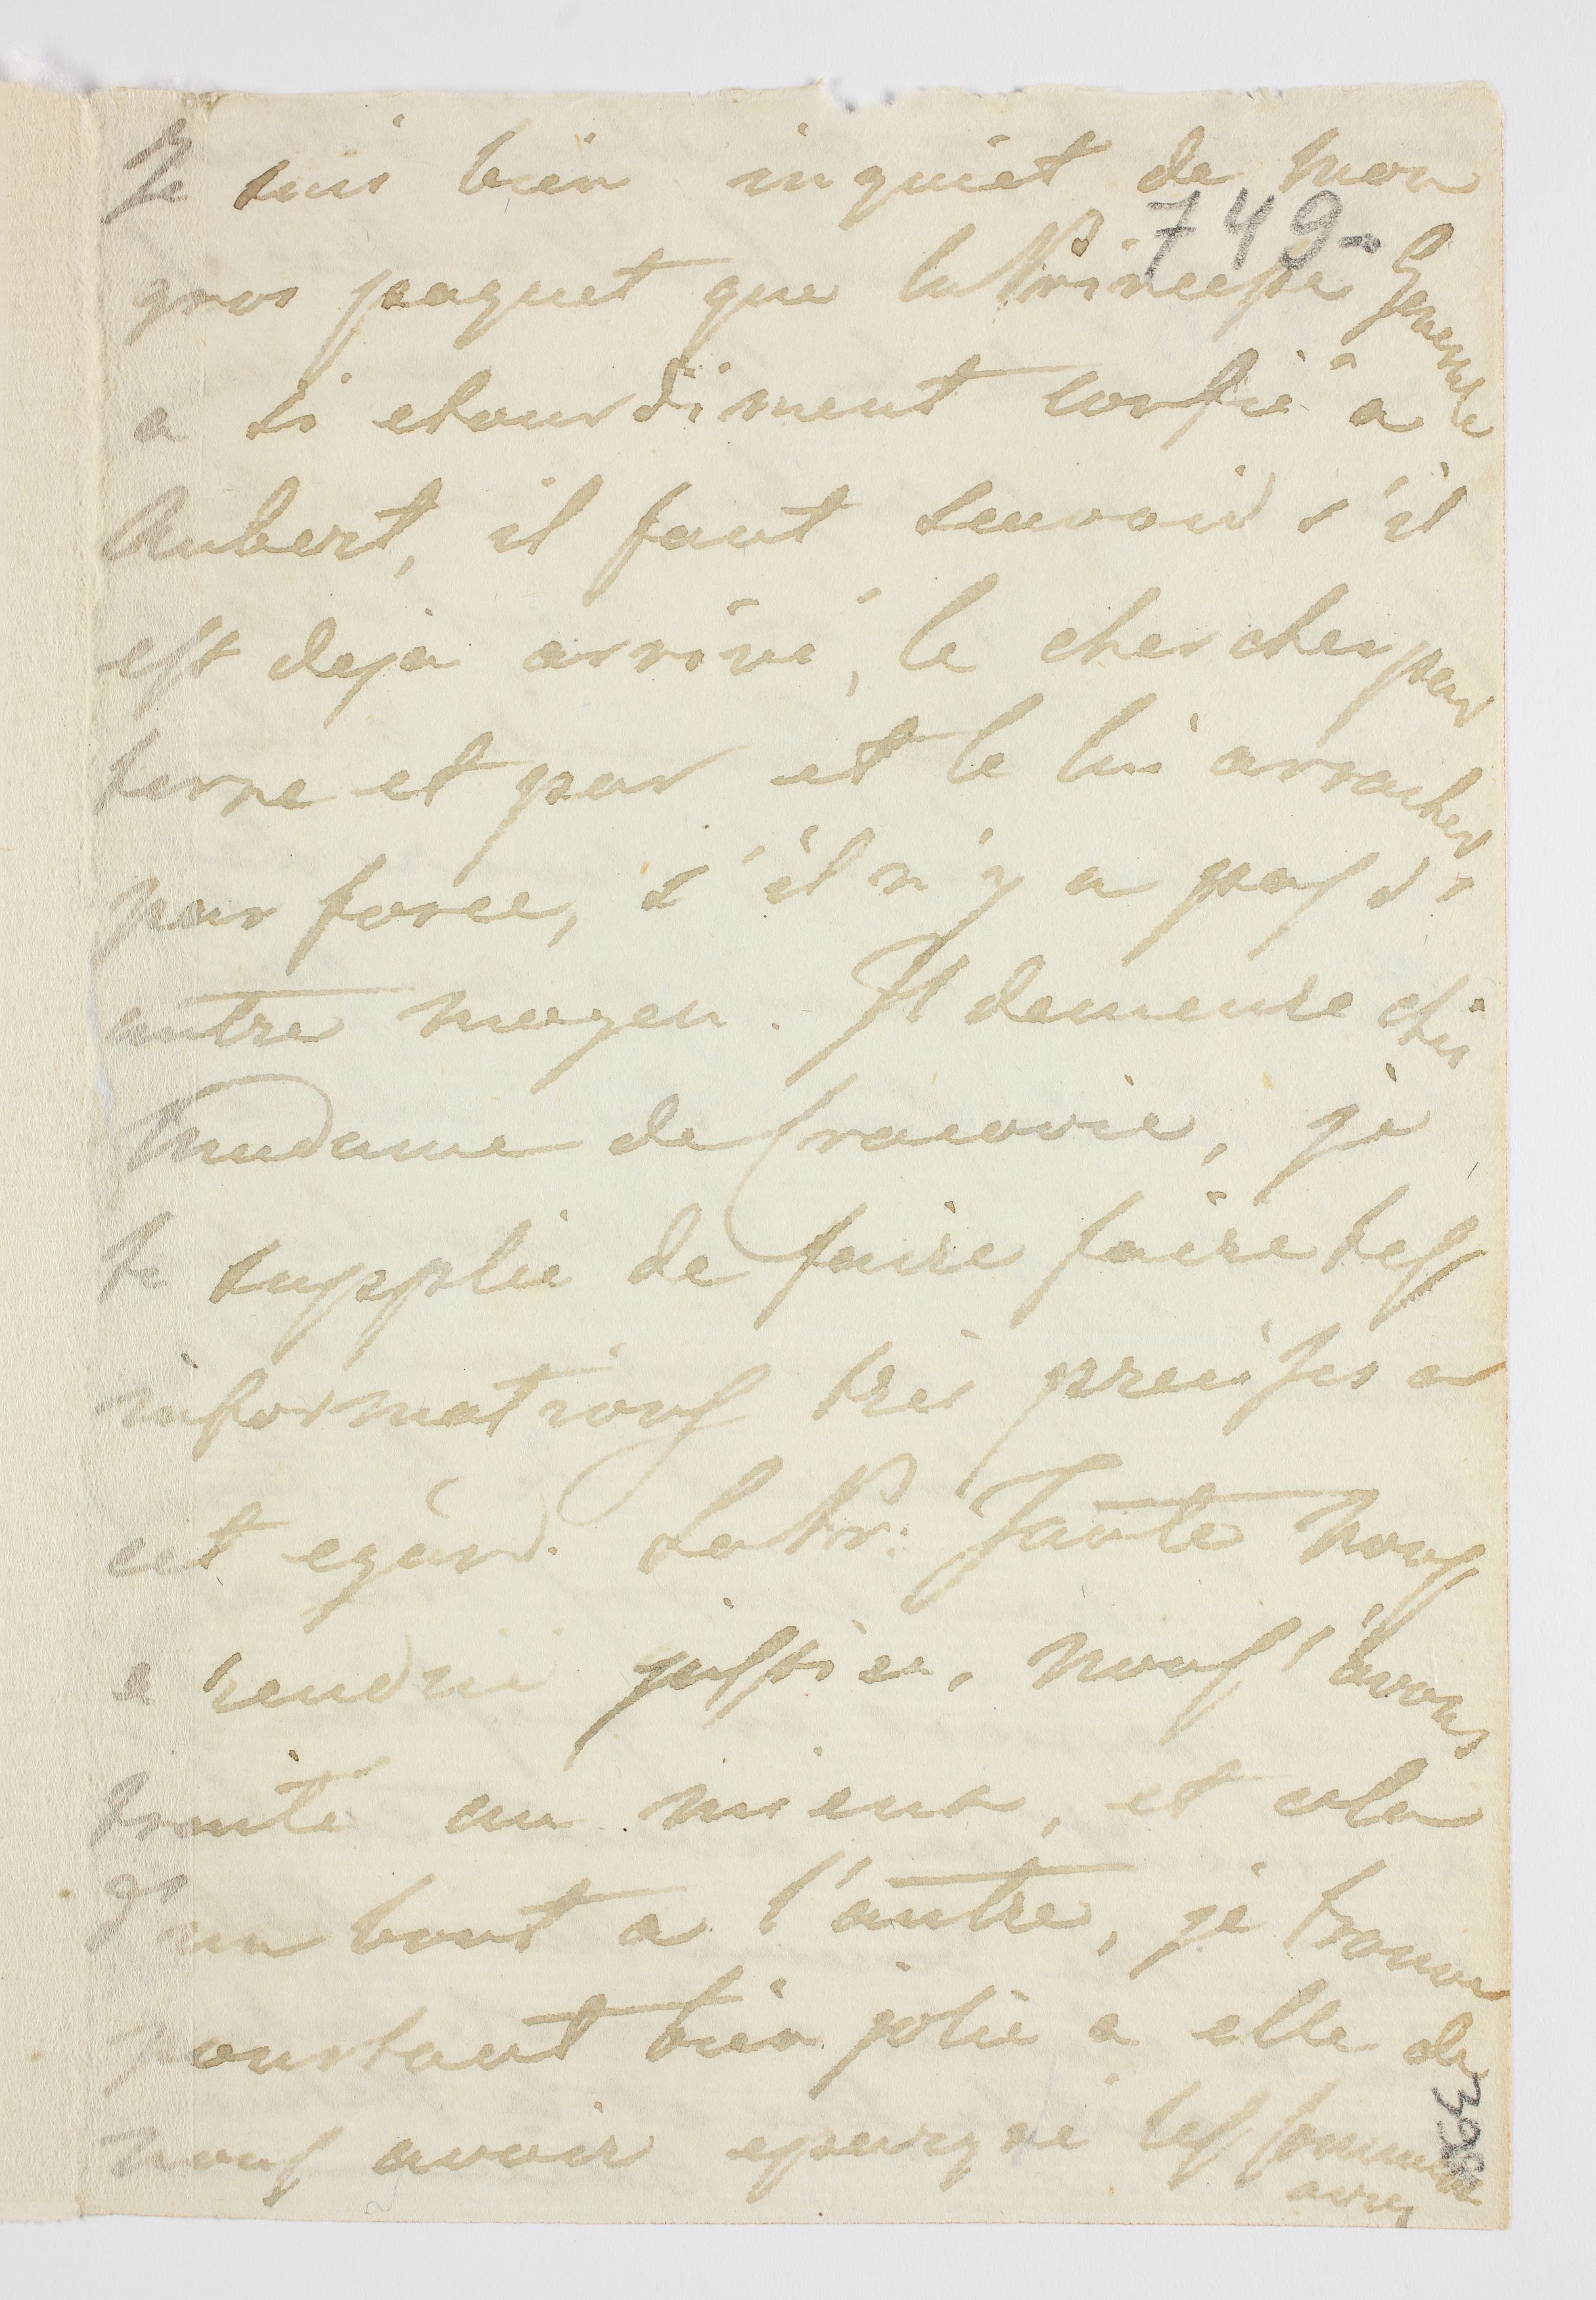 Je suis bien inquiet de mon
749
gros paquet que la Princesse
a si etourdiment confié à
Aubert, il faut scavoir s'il
est deja arrivé, le chercher par
terre et par et le lui arracher
par force, s'il n'y a pas d'
autre moyen. Il demeure chés
Madame de Cracovie, je
te supplie de faire faire des
informations tres precises a
cet egard. La Pr. Jante nous
a rendrie justice, nous l'avons
traité au mieux, et cela
d'un bout a l'autre, je trouve
pourtant bien jolie a elle de
nous avoir epargné les